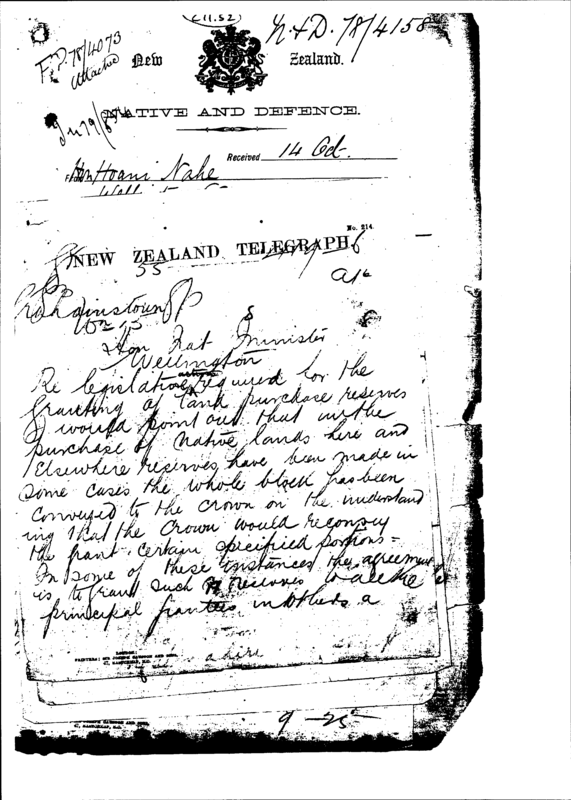 C 11.52
N & D. 78/4158
F.P. 78/4073
Attached
New Zealand.
NATIVE AND DEFENCE.
Received 14 Oct.
Hon Hoani Nahe
No. 214.
NEW ZEALAND TELEGRAPH.
Hon Nat Minister
Wellington
Re legislative action required for the
granting of land purchase reserves
I would point out that in the
purchase of Native lands here and
Elsewhere reserves have been made in
some cases the whole block has been
conveyed to the crown on the understand
ing that the Crown would reconvey
the grant certain specified portions =
In some of these instances the agreement
is to grant such reserves to all the
principal grantees in others a
LONDON:
9-25